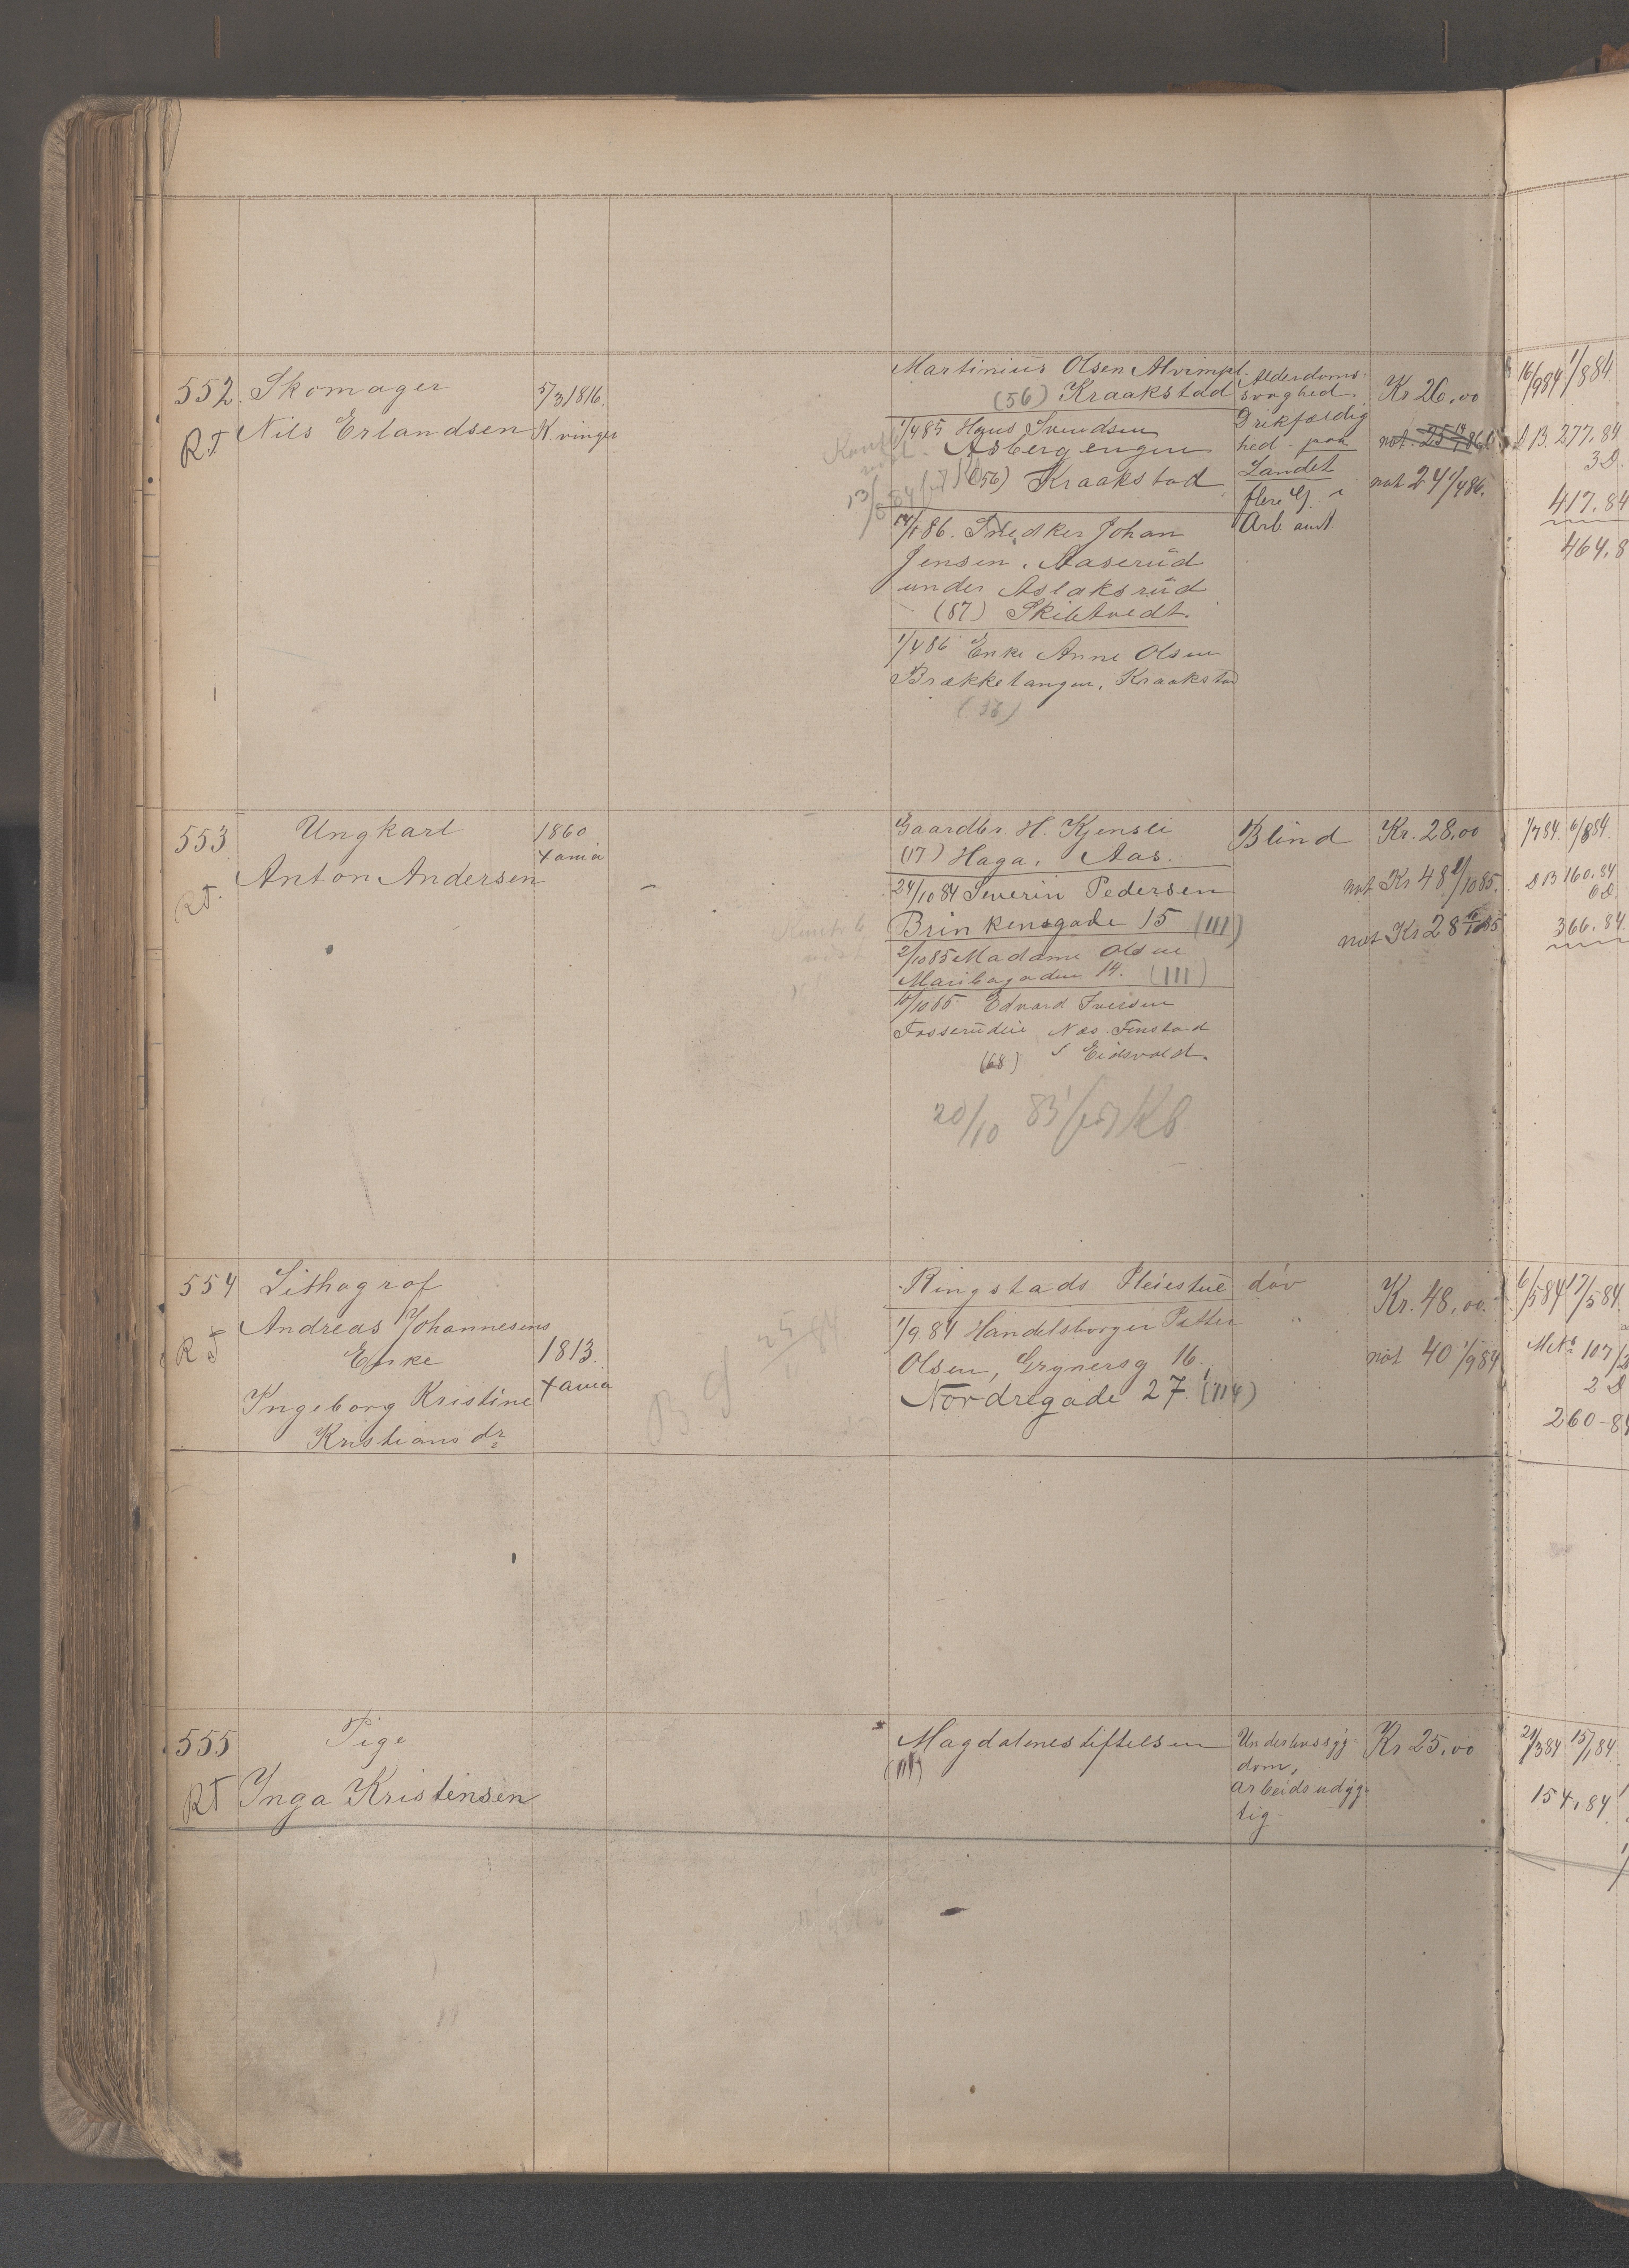 552. Skomager
Nils Erlandsen
RT
5/3 1816.
Kvinger
Martinius Olsen
(56) Kraakstad
1/4 85 Hans Svendsen
Asbergengen
(56) Kraakstad
14/1 86. Snedker Johan
Jensen. Aaserud
under Aslaksrud
(87) Skibtvedt.
1/4 86 Enke Anne Olsen
Brækketangen, Kraakstad
(56)
Alderdoms-
svaghed
Drikfældig
hed paa
Landet
flere G. i
Arb anst
Kr 26,00
not 24 1/4 86.
16/9 84 1/8 84
D B. 277.84
3 D.
417.84
464.8
553
RT.
Ungkarl
Anton Andersen
1860
Xania
Gaardbr. H. Kjensli
(17) Haga, Aas.
24/10 84 Severin Pedersen
Brinkensgade 15 (111)
2/10 85 Madame Olsen
Maribogaden 14. (111)
Edvard Iversen
Næs. Finstad
(68) Eidsvold.
20/10 85 Kb
Blind
Kr. 28,00
not Kr 48 1/10 85.
not Kr 28
1/7 84 6/8 84
D B 160.84
6 D.
366.84
554
RT
Lithograf
Andreas Johannesens
Enke
Ingeborg Kristine
Kristiansdr
1813.
Xania
B. G 25/11 84
Ringstads Pleiestue
1/9 84 Handelsborger Petter
Olsen, Grynersg 16.
Nordregade 27. (114)
døv
Kr. 48,00.
not 40 1/9 84
6/5 84 17/5 84
107
2 D
260-84
555
RT
Pige
Inga Kristensen
Magdalenestiftelsen
(111)
Underlivssyg
dom,
arbeidsudyg-
tig
Kr 25,00
21/3 84 15/1 84
154.84